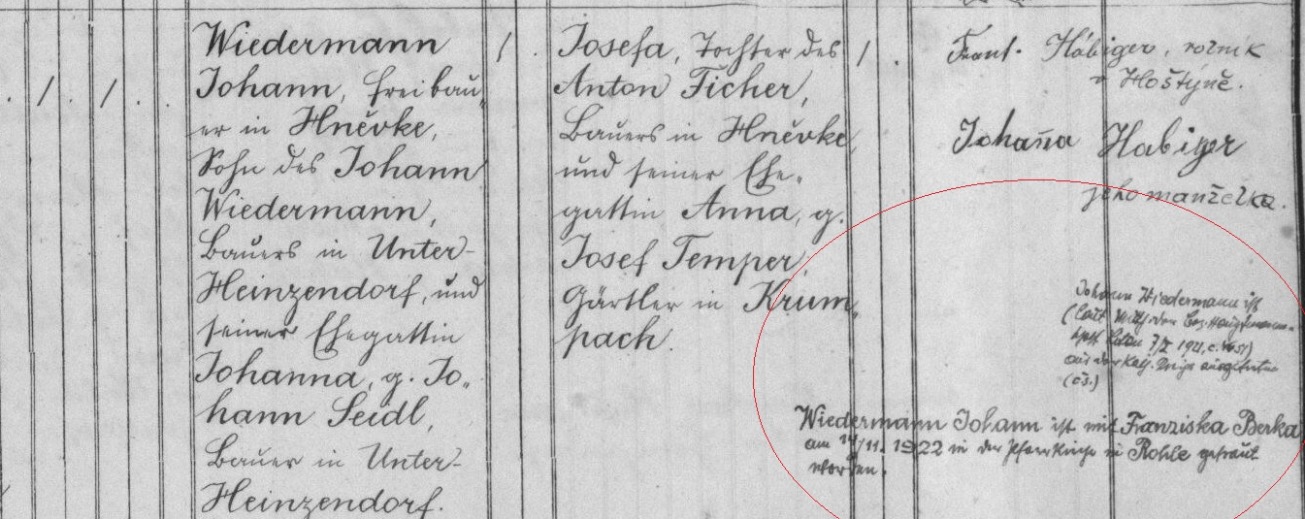 Wiedermann
Johann, Freibau„
er in Hněvke,
Sohn des Johann
Wiedermann,
Bauers in Unter-
Heinzendorf, und
seiner Ehegattin
Johanna, g. Jo„
hann Seidl,
Bauer in Unter-
Heinzendorf.
Josefa, Tochter des
Anton Ficher,
Bauers in Hněvke
und seiner Ehe„
gattin Anna, g.
Josef Temper,
Gärtler in Krum„
pach.
Frant. Habiger, rolník
v Hoštýně.
Johanna Habiger
jeho manželka.
Johann Wiedermann ist
(laut der
1921,
aus der kath. ausgetreten
(čs.)
Wiedermann Johann ist mit Franziska Berka
am 14/11. 1922 in der Pfarrkirche in Rohle getraut
worden.